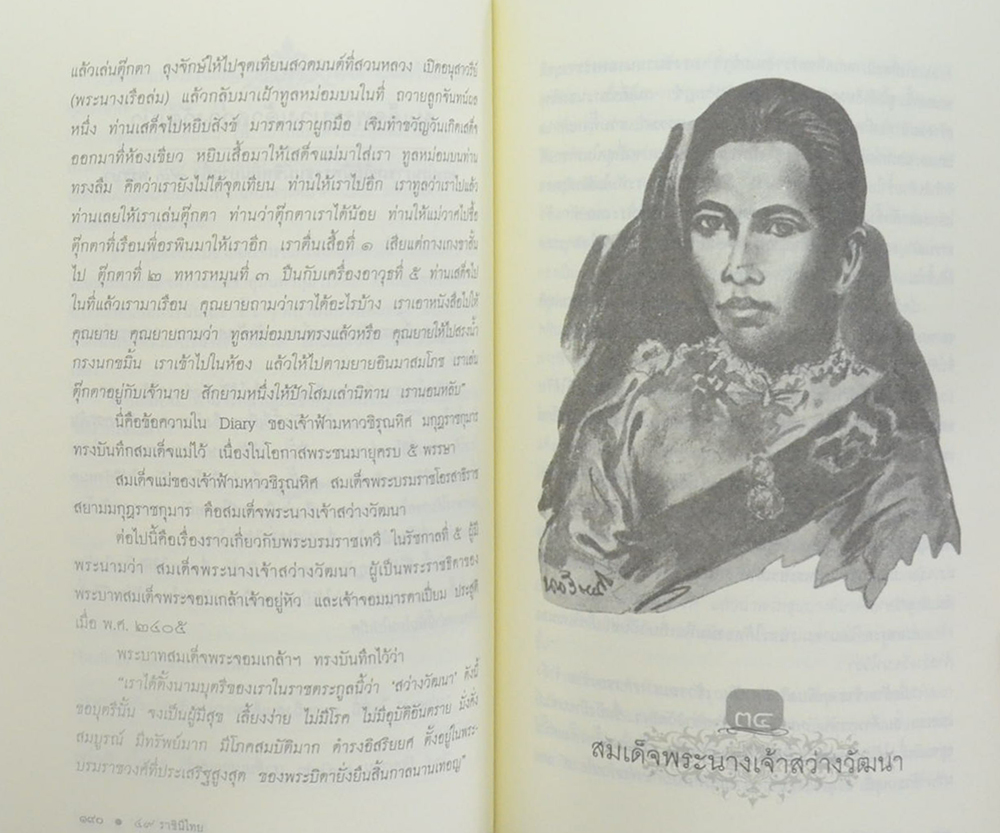 แล้วเล่นตุ๊กตา ลุงจักษ์ให้ไปจุดเทียนสวดมนต์ที่สวนหลวง เปิดอนุสาวรีย์
(พระนางเรือล่ม) แล้วกลับมาเฝ้าทูลหม่อมบนในที่ ถวายลูกจันทน์ผล
หนึ่ง ท่านเสด็จไปหยิบสังข์ มารดาเราผูกมือ เจิมทำขวัญวันเกิดเสด็จ
ออกมาที่ห้องเขียว หยิบเสื้อมาให้เสด็จแม่มาใส่เรา ทูลหม่อมบนท่าน
ทรงลืม คิดว่าเรายังไม่ได้จุดเทียน ท่านให้เราไปอีก เราทูลว่าเราไปแล้ว
ท่านเลยให้เราเล่นตุ๊กตา ท่านว่าตุ๊กตาเราได้น้อย ท่านให้แม่วาดไปซื้อ
ตุ๊กตาที่เรือนพี่อรพินมาให้เราอีก เราตื่นเสื้อที่ ๑ เสียแต่กางเกงขาสั้น
ไป ตุ๊กตาที่ ๒ ทหารหมุนที่ ๓ ปืนกับเครื่องอาวุธที่ ๕ ท่านเสด็จไป
ในที่แล้วเรามาเรือน คุณยายถามว่าเราได้อะไรบ้าง เราเอาหนังสือไปให้
คุณยาย คุณยายถามว่า ทูลหม่อมบนทรงแล้วหรือ คุณยายให้ไปสรงน้ำ
กรงนกขมิ้น เราเข้าไปในห้อง แล้วให้ไปตามยายอินมาสมโภช เราเล่น
ตุ๊กตาอยู่กับเจ้านาย สักยามหนึ่งให้ป้าโสมเล่านิทาน เรานอนหลับ”
นี่คือข้อความใน Diary ของเจ้าฟ้ามหาวชิรุณหิศ มกุฎราชกุมาร
ทรงบันทึกสมเด็จแม่ไว้ เนื่องในโอกาสพระชนมายุครบ ๕ พรรษา
สมเด็จแม่ของเจ้าฟ้ามหาวชิรุณหิศ สมเด็จพระบรมราชโอรสาธิราช
สยามมกุฎราชกุมาร คือสมเด็จพระนางเจ้าสว่างวัฒนา
ต่อไปนี้คือเรื่องราวเกี่ยวกับพระบรมราชเทวี ในรัชกาลที่ ๕ ผู้มี
พระนามว่า สมเด็จพระนางเจ้าสว่างวัฒนา ผู้เป็นพระราชธิดาของ
พระบาทสมเด็จพระจอมเกล้าเจ้าอยู่หัว และเจ้าจอมมารดาเปี่ยม ประสูติ
เมื่อ พ.ศ. ๒๔๐๕
พระบาทสมเด็จพระจอมเกล้าฯ ทรงบันทึกไว้ว่า
“เราได้ตั้งนามบุตรีของเราในราชตระกูลนี้ว่า ‘สว่างวัฒนา’ ดังนี้
ขอบุตรีนั้น จงเป็นผู้มีสุข เลี้ยงง่าย ไม่มีโรค ไม่มีอุบัติอันตราย มั่งคั่ง
สมบูรณ์ มีทรัพย์มาก มีโภคสมบัติมาก ดำรงอิสริยยศ ตั้งอยู่ในพระ-
บรมราชวงศ์ที่ประเสริฐสูงสุด ของพระบิดายั่งยืนสิ้นกาลนานเทอญ”
๑๙๐ ● ๔๙ ราชินีไทย
๓๔
สมเด็จพระนางเจ้าสว่างวัฒนา